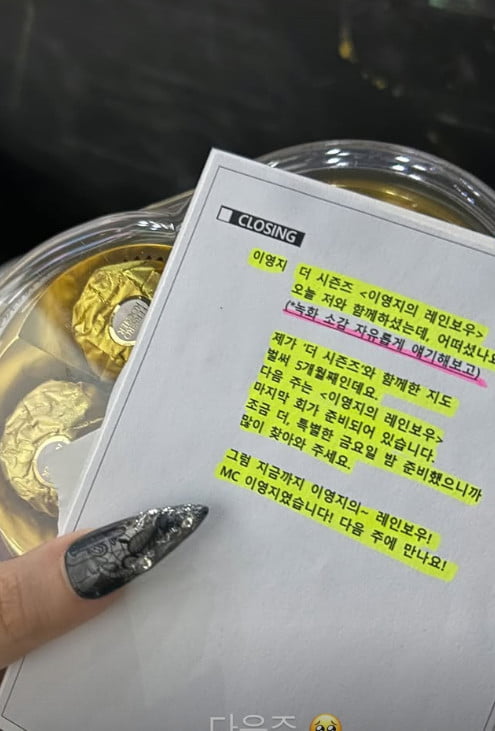 CLOSING
이영지 더 시즌즈 <이영지의 레인보우>
오늘 저와 함께하셨는데, 어떠셨나요
(*녹화 소감 자유롭게 얘기해보고)
제가 '더 시즌즈'와 함께한 지도
벌써 5개월째인데요.
다음 주는 <이영지의 레인보우>
마지막 회가 준비되어 있습니다.
조금 더, 특별한 금요일 밤 준비했으니까
많이 찾아와 주세요.
그럼 지금까지 이영지의~ 레인보우!
MC 이영지였습니다! 다음 주에 만나요!
다음주 🥺